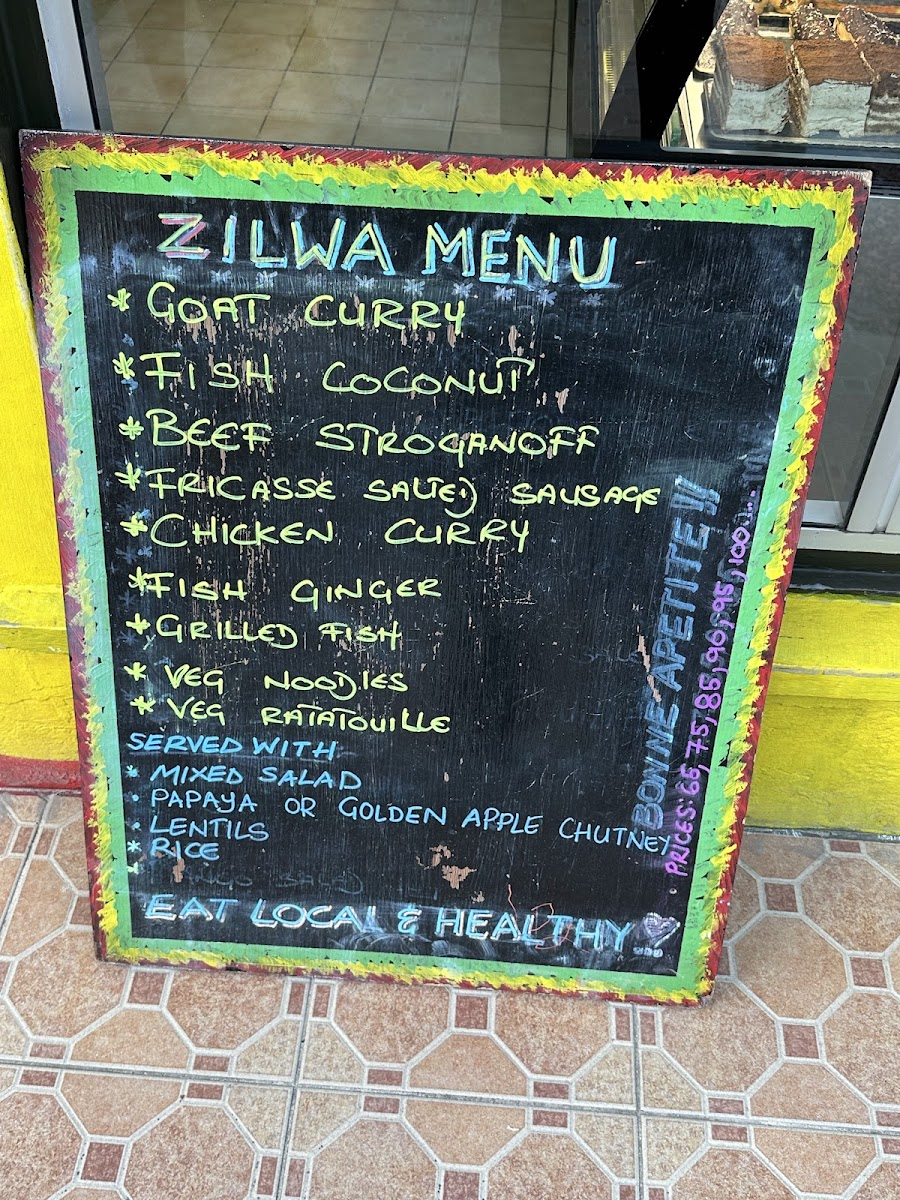 ZILWA MENU
* GOAT CURRY
* FISH COCONUT
* BEEF STROGANOFF
* FRICASSE SAUSAGE
* CHICKEN CURRY
* FISH GINGER
* GRILLED FISH
* VEG NOODLES
* VEG RATATOUILLE
SERVED WITH
* MIXED SALAD
• PAPAYA OR GOLDEN APPLE CHUTNEY
• LENTILS
* RICE
EAT LOCAL & HEALTHY
BONNE APETITE !!
PRICES: 65, 75, 85, 90, 95, 100....